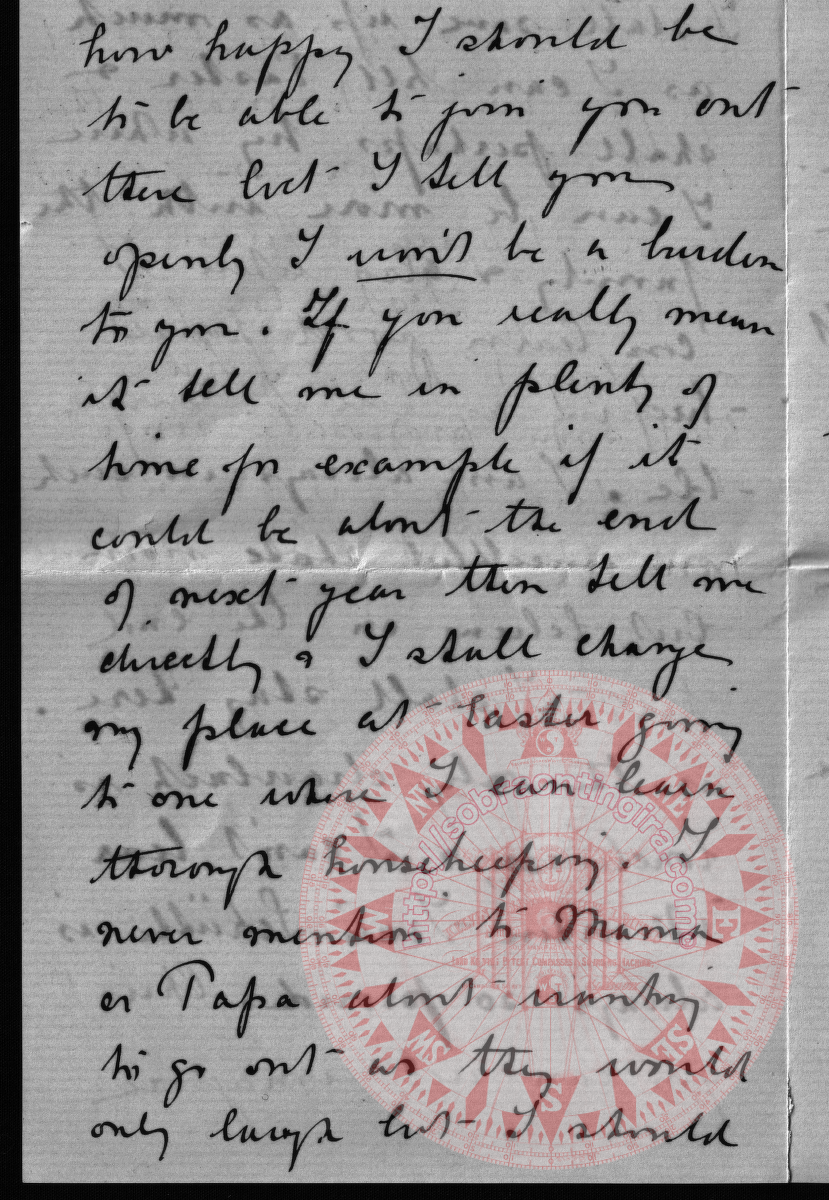 how happy I should be
to be able to join you out
there but I tell you
openly I won't be a burden
to you. If you really mean
it tell me in plenty of
time for example if it
could be about the end
of next year then tell me
directly & I shall change
my place at Easter going
to one where I can learn
thorough housekeeping. I
never mention to Mama
or Papa about wanting
to go out as they would
only laugh but I should
http://sobraontingira.com
NE
E
SE
S
SW
W
NW